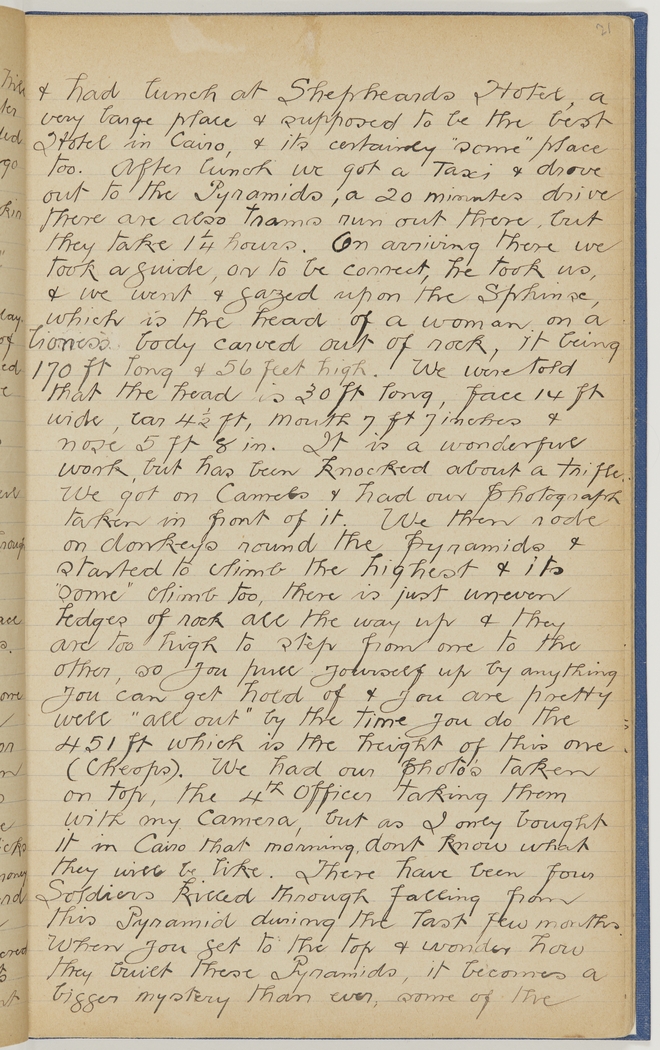 21
& had lunch at Shepheards Hotel, a
very large place & supposed to be the best
Hotel in Cairo, & its certainly "some" place
too. After lunch we got a Taxi & drove
out to the Pyramids, a 20 minutes drive
there are also trams run out there, but
they take 1¼ hours. On arriving there we
took a guide, or to be correct, he took us,
& we went & gazed upon the Sphinx,
which is the head of a woman on a
lioness body carved out of rock, it being
170 ft long & 56 feet high. We were told
that the head is 30 ft long, face 14 ft
wide, ear 4½ ft, mouth 7 ft 7 inches &
nose 5 ft 8 in. It is a wonderful
work, but has been knocked about a trifle.
We got on Camels & had our photograph
taken in front of it. We then rode
on donkeys round the Pyramids, &
started to climb the highest & its
"some" climb too, there is just uneven
ledges of rock all the way up & they
are too high to step from one to the
other, so you pull yourself up by anything
you can get hold of & you are pretty
well "all out" by the time you do the
451 ft which is the height of this one
(Cheops). We had our photo's taken
on top, the 4th Officer taking them
with my Camera, but as I only bought
it in Cairo that morning, dont know what
they will be like. There have been four
Soldiers killed through falling from
this Pyramid during the last few months.
When you get to the top & wonder how
they built these Pyramids, it becomes a
bigger mystery than ever, some of the